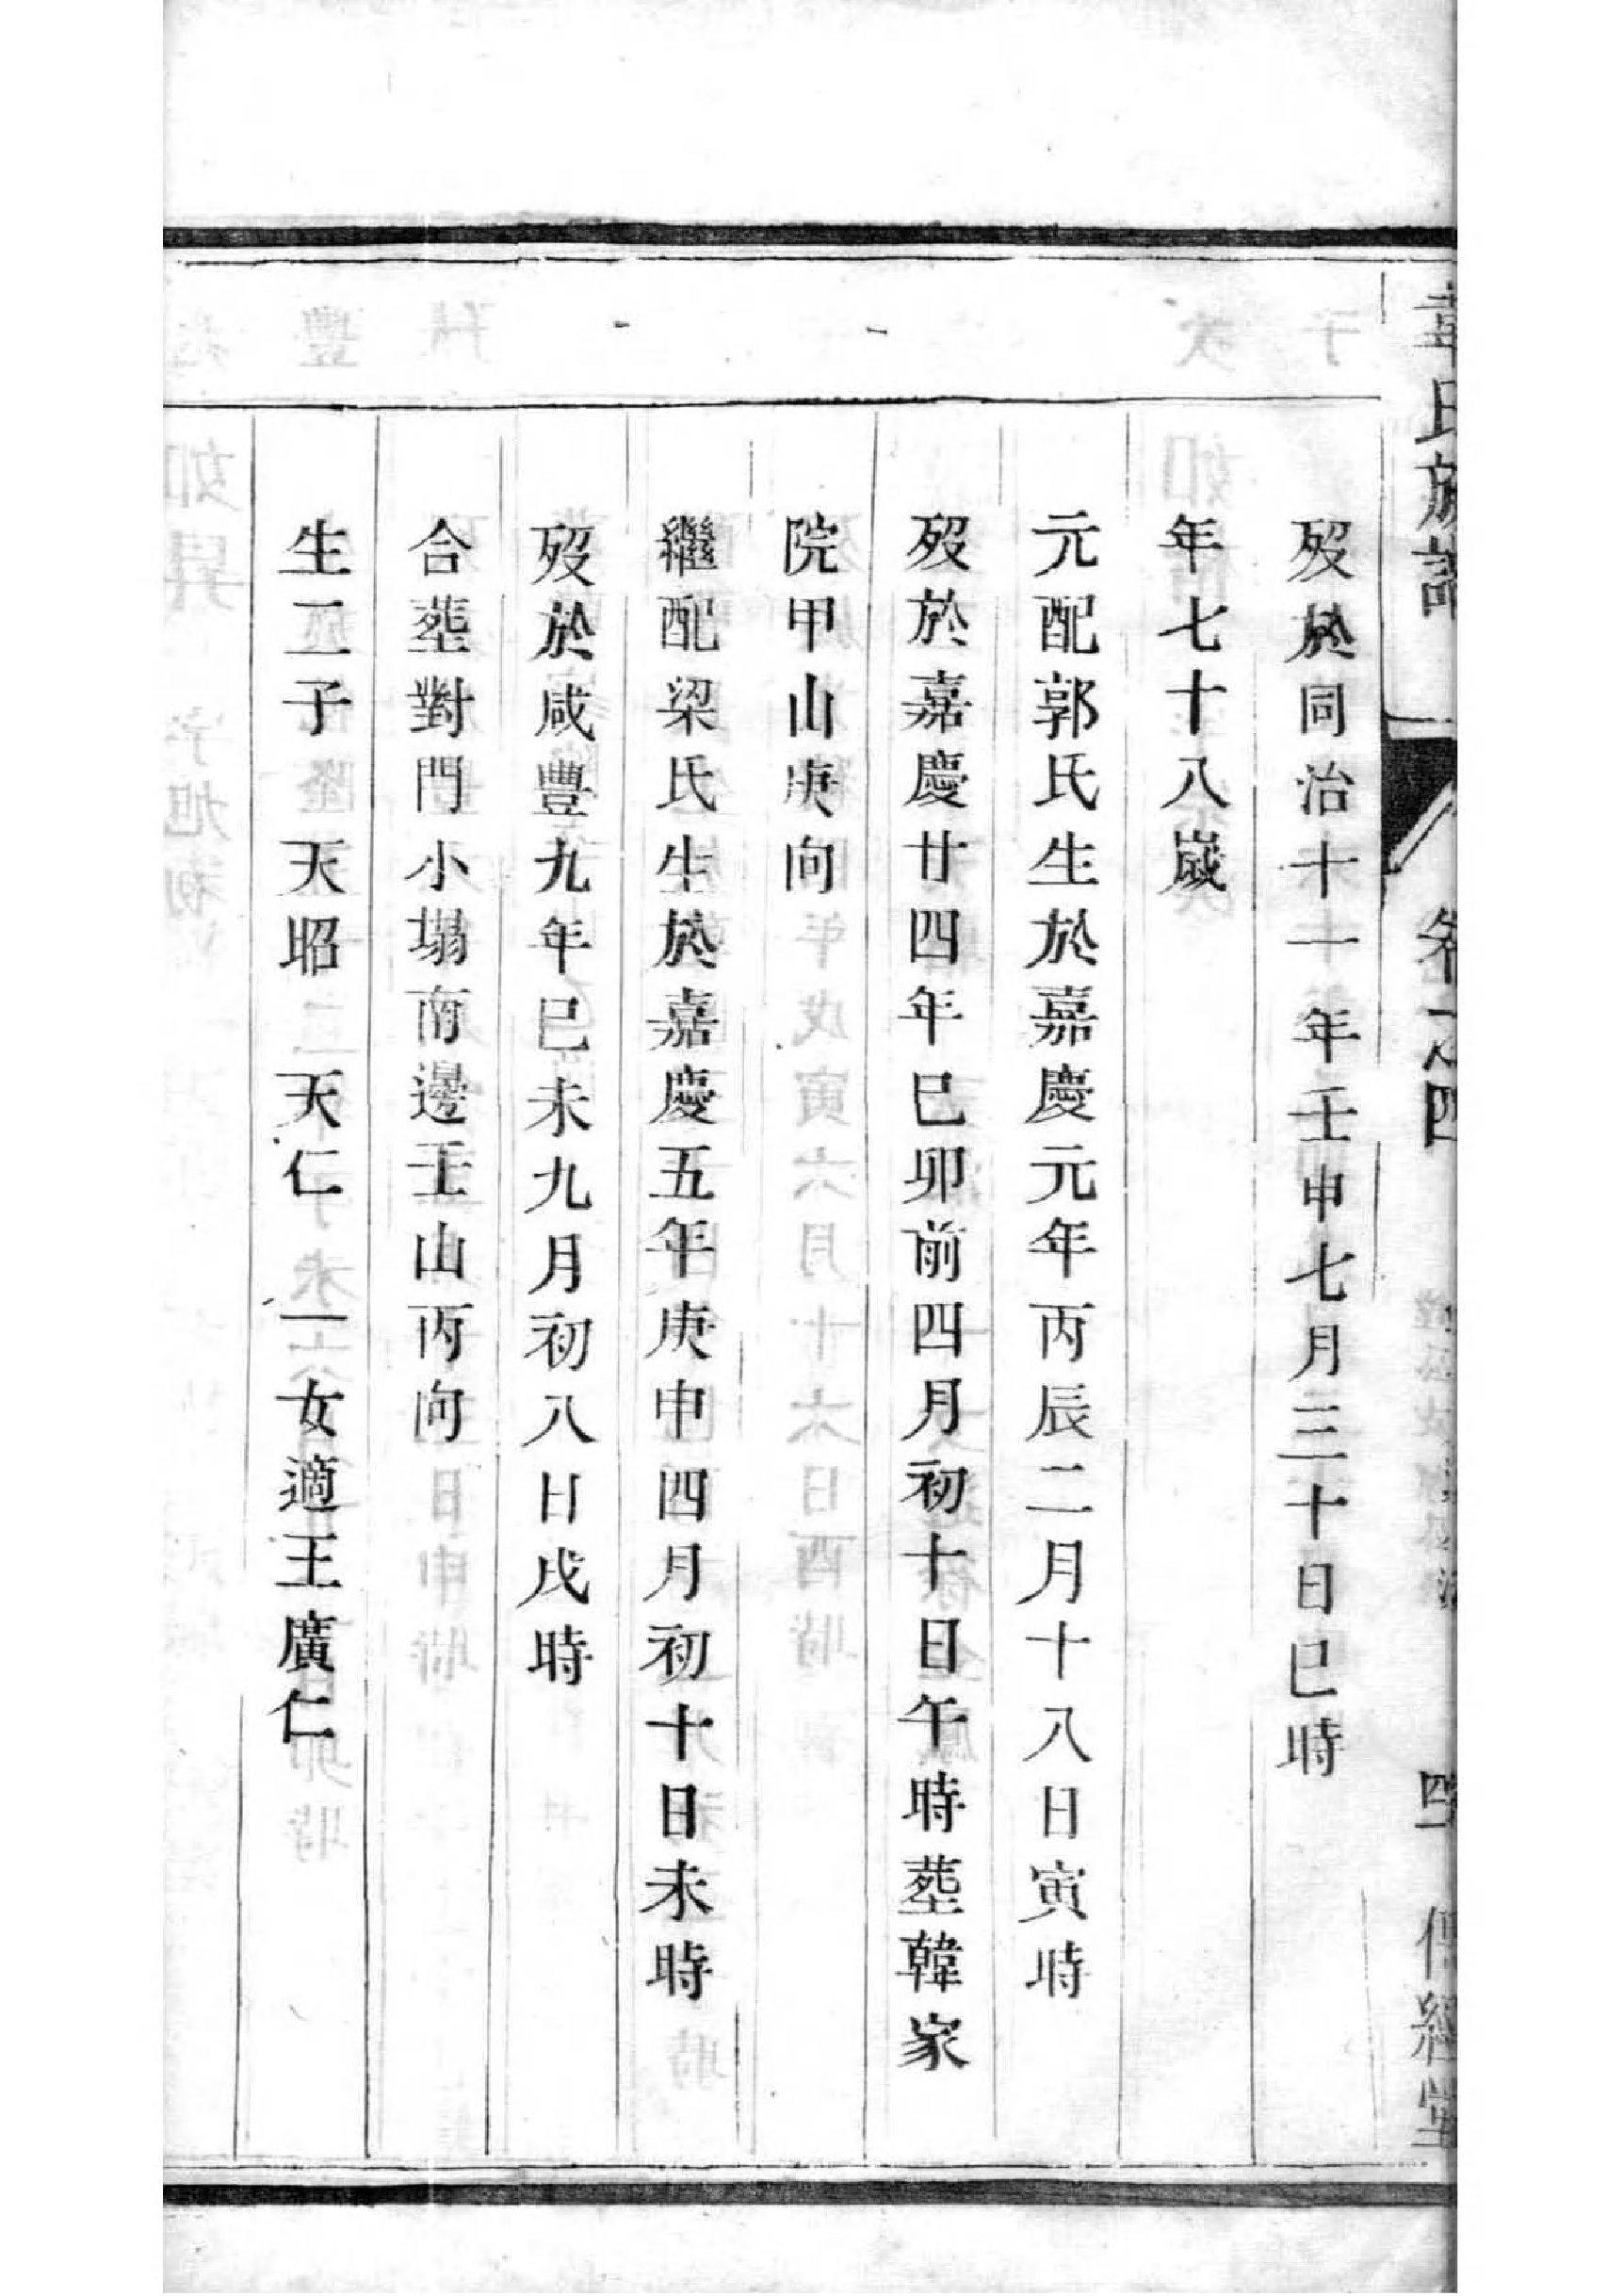 韋氏族譜 卷一之四 四 傳經堂
歿於同治十一年壬申七月三十日巳時
年七十八歲
元配郭氏生於嘉慶元年丙辰二月十八日寅時
歿於嘉慶廿四年巳卯前四月初十日午時塟韓家
院甲山庚向
繼配梁氏生於嘉慶五年庚申四月初十日未時
歿於咸豐九年巳未九月初八日戌時
合塟對門小塌南邊壬山丙向
生二子 天昭 天仁 一女適王廣仁